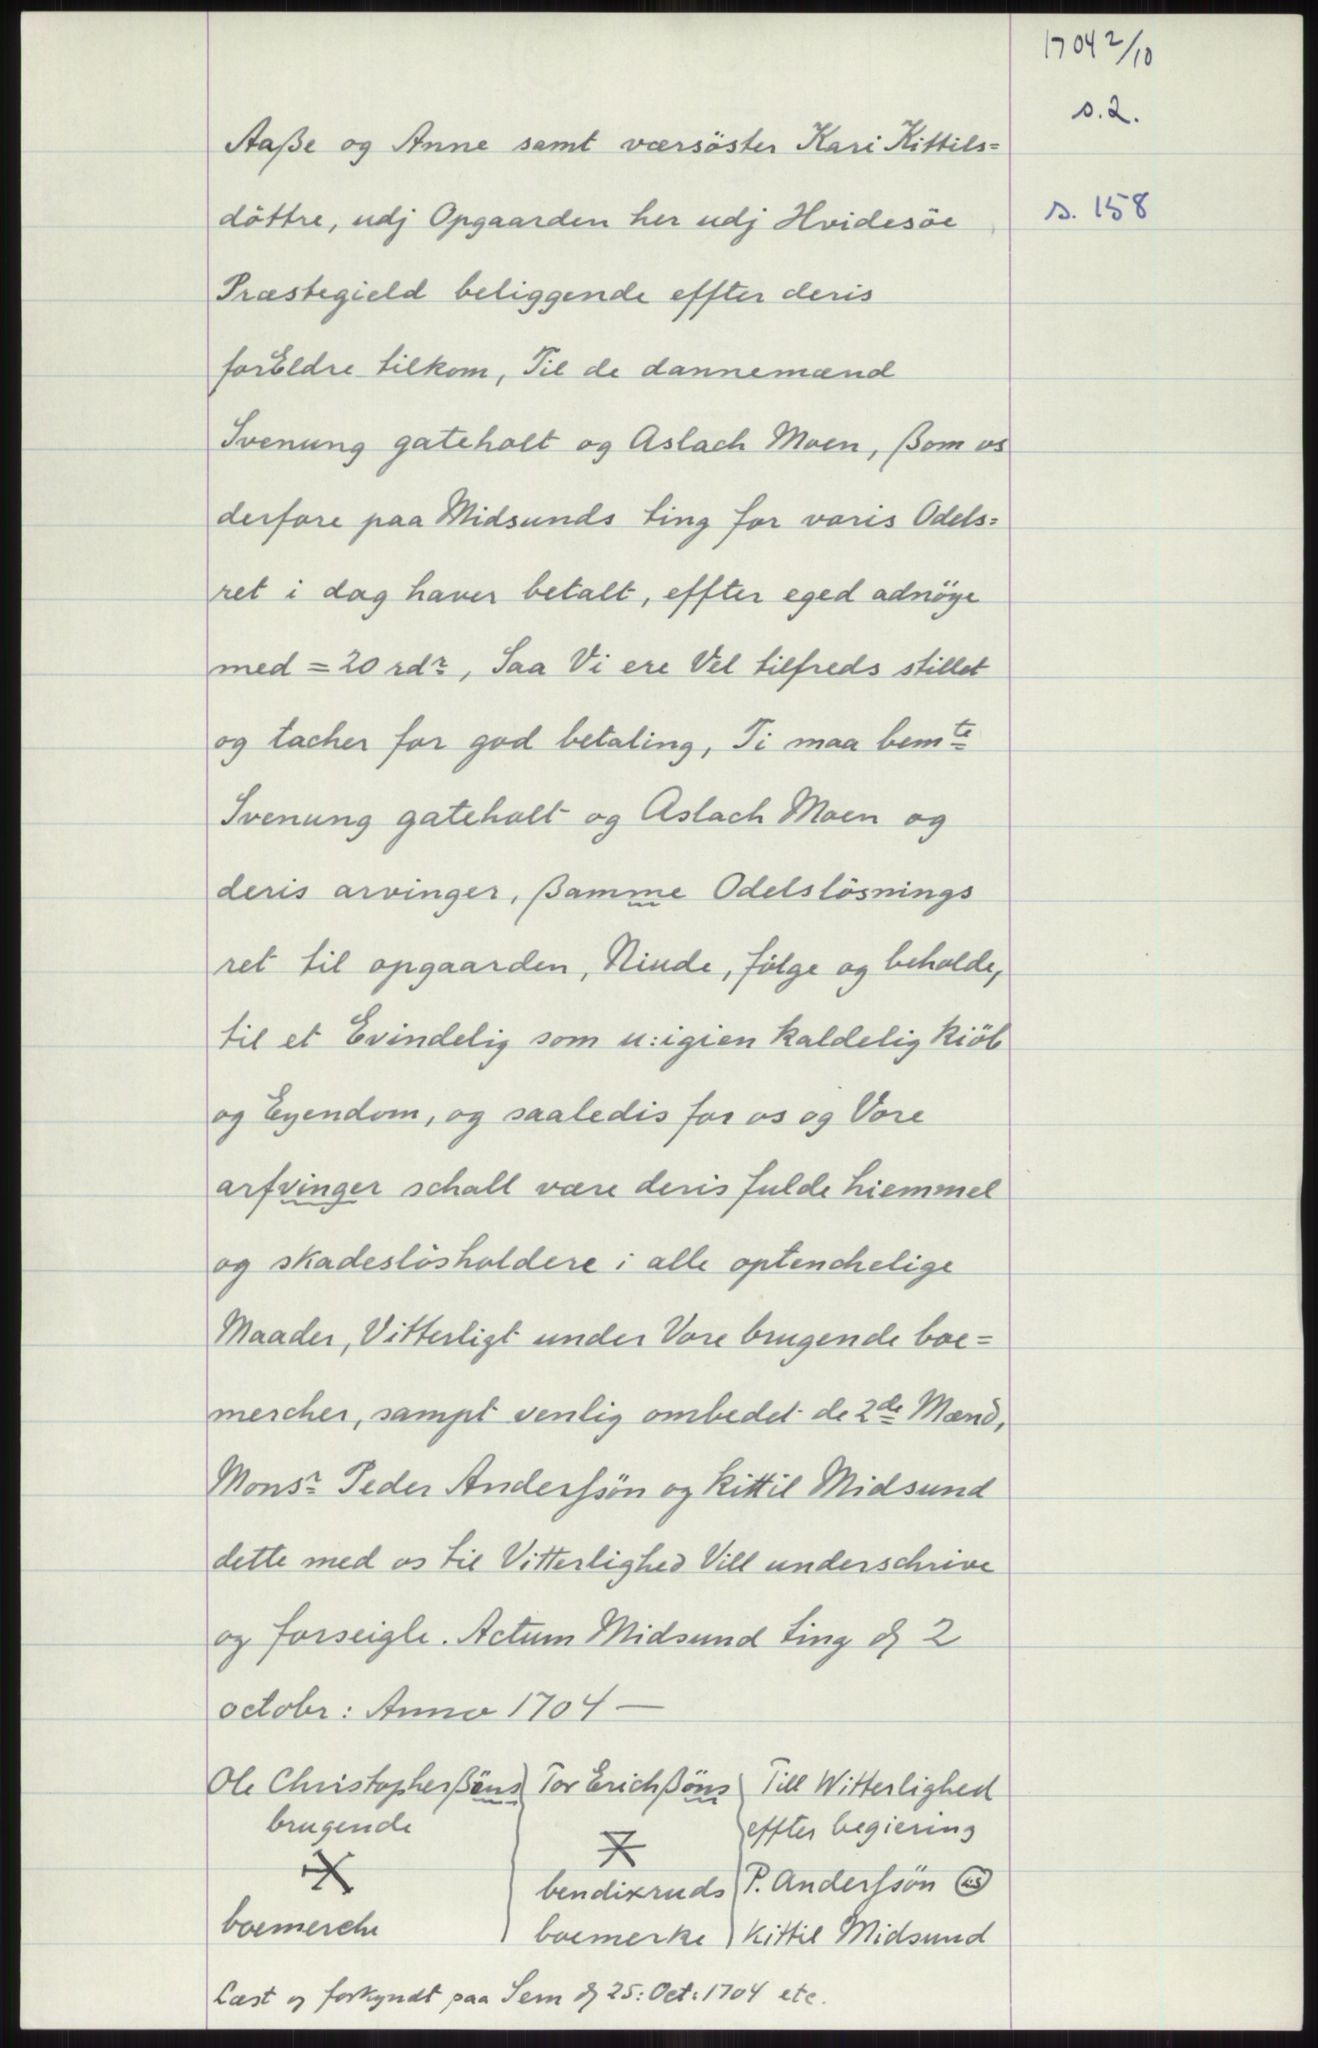 1704 2/10
s. 2.
s. 158
Aaße og Anne samt værsöster Kari Kittils=
döttre, udj Opgaarden her udj Hvidesöe
Præstegield beliggende effter deris
forEldre tilkom, Til de dannemænd
Svenung gateholt og Aslach Moen, ßom os
derfore paa Midsunds ting for voris Odels=
ret i dag haver betalt, effter eged adnöye
med = 20 rdr, Saa Vi ere Vel tilfreds stillet
og tacher for god betaling, Ti maa bemte
Svenung gateholt og Aslach Moen og
deris arvinger, ßamme Odelslösnings
ret til opgaarden, Niude, fölge og beholde,
til et Evindelig som u:igien kaldelig kiöb
og Eyendom, og saaledis for os og Vore
arfvinger schall være deris fulde hiemmel
og skadeslösholdere i alle optenchelige
Maader, Vitterligt under Vore brugende boe=
mercher, sampt venlig ombedet de 2de Mænd,
Monsr Peder Anderssön og Kittil Midsund
dette med os til Vitterlighed Vill underschrive
og forseigle. Actum Midsund ting d 2
octobr: Anno 1704 —
Ole Christopherßöns Tor Erichßöns Till Witterlighed
brugende effter begiering
bendixruds P. Anderssön LS
boemerche boemerke Kittil Midsund
Læst og forkyndt paa Sem d 25: Oct: 1704 etc.